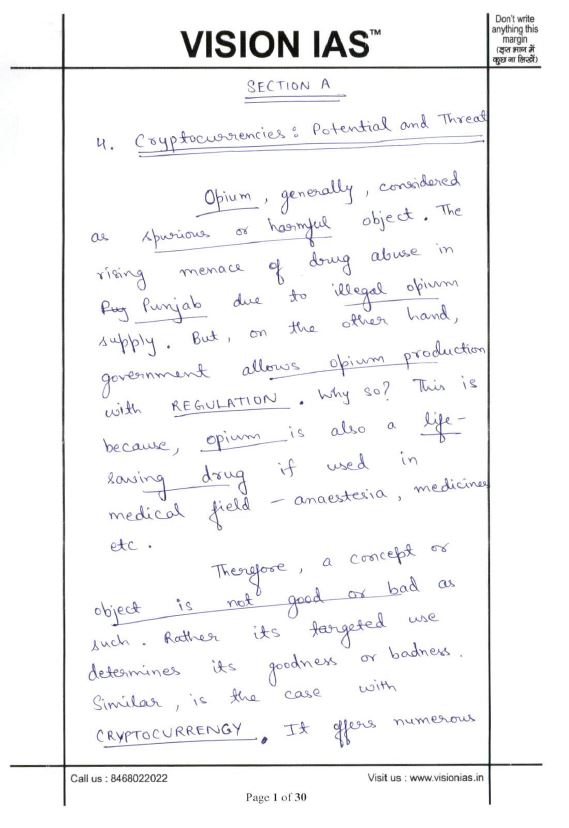 VISION IAS™
Don't write
anything this
margin
(इस भाग में
कुछ ना लिखें)
SECTION A
4. Cryptocurrencies : Potential and Threat
Opium, generally, considered
as spurious or harmful object. The
rising menace of drug abuse in
Puj Punjab due to illegal opium
supply. But, on the other hand,
government allows opium production
with REGULATION. Why so? This is
because, opium is also a life-
saving drug if used in
medical field - anaestesia, medicines
etc.
Therefore, a concept or
object is not good or bad as
such. Rather its targeted use
determines its goodness or badness.
Similar, is the case with
CRYPTOCURRENGY. It offers numerous
Call us : 8468022022
Visit us : www.visionias.in
Page 1 of 30